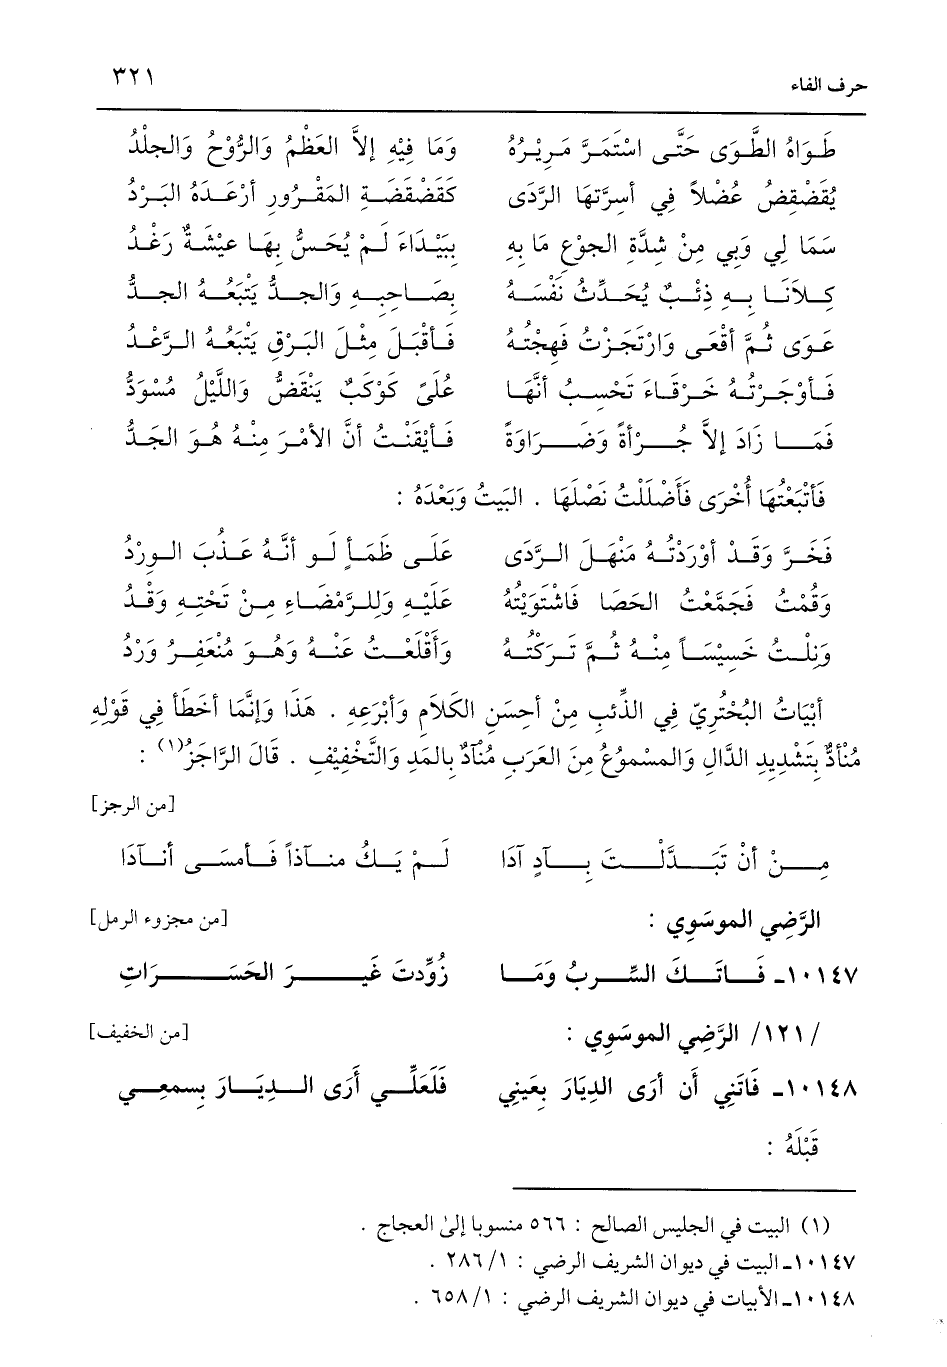 حرف الفاء ٣٢١
طَوَاهُ الطَّوَى حَتَّى اسْتَمَرَّ مَرِيْرُهُ وَمَا فِيْهِ إلاَّ العَظْمُ وَالرُّوْحُ وَالجلْدُ
يُقَضْقِضُ عُصْلاً فِي أسِرَّتهَا الرَّدَى كَقَضْقَضَةِ المَقْرُورِ أرْعَدَهُ البَرْدُ
سَمَا لِي وَبِي مِنْ شِدَّةِ الجوْعِ مَا بِهِ بِبَيْدَاءَ لَمْ يُحْسَنُ بِهَا عِيْشَةٌ رَغْدُ
كِلاَنَا بِهِ ذِئْبٌ يُحَدِّثُ نَفْسَهُ بِصَاحِبِهِ وَالجدُّ يَتْبَعُهُ الجدُّ
عَوَى ثُمَّ أقْعَى وَارْتَجَزْتُ فَهِجْتُهُ فَأقْبَلَ مِثْلَ البَرْقِ يَتْبَعُهُ الرَّعْدُ
فَأوْجَرْتُهُ خَرْقَاءَ تَحْسِبُ أنَّهَا عُلَىً كَوْكَبٌ يَنْقَضُّ وَاللَّيْلُ مُسْوَدُّ
فَمَا زَادَ إلاَّ جُرْأةً وَضَرَاوَةً فَأيْقَنْتُ أنَّ الأمْرَ مِنْهُ هُوَ الجدُّ
فَأتْبَعْتُهَا أُخْرَى فَأضْلَلْتُ نَصْلَهَا . البَيتُ وَبَعْدَهُ :
فَخَرَّ وَقَدْ أوْرَدْتُهُ مَنْهَلَ الرَّدَى عَلَى ظَمَأٍ لَو أنَّهُ عَذُبَ الوِرْدُ
وَقُمْتُ فَجَمَّعْتُ الحَصَا فَاشْتَوَيْتُهُ عَلَيْهِ وَلِلرَّمْضَاءِ مِنْ تَحْتِهِ وَقْدُ
وَنِلْتُ خَسِيْسَاً مِنْهُ ثُمَّ تَرَكْتُهُ وَأقْلَعْتُ عَنْهُ وَهُوَ مُنْعَفِرُ وَرْدُ
أبْيَاتُ البُحْتُرِيّ فِي الذِّئبِ مِنْ أحسَنِ الكَلاَمِ وَأبْرَعِهِ . هَذَا وَإنَّمَا أخطَأ فِي قَوْلِهِ
مُنْأدٌّ بِتَشْدِيدِ الدَّالِ وَالمسْمُوعُ مِنَ العَرَبِ مُنآدٌ بِالمَدِ وَالتَّخْفِيْفِ . قَالَ الرَّاجِزُ(١) :
[من الرجز]
مِنْ أنْ تَبَدَّلْتَ بِآدٍ آدَا لَمْ يَكُ منآداً فَأمسَى أنآدَا
الرَّضِي الموسَوِي : [من مجزوء الرمل]
١٠١٤٧ـ فَاتَكَ السِّربُ وَمَا زُوِّدتَ غَيرَ الحَسَرَاتِ
/ ١٢١/ الرَّضِي الموسَوِي : [من الخفيف]
١٠١٤٨ـ فَاتَنِي أن أرَى الدِيَارَ بِعَينِي فَلَعَلِّي أرَى الدِيَارَ بِسمعِي
قَبْلَهُ :
(١) البيت في الجليس الصالح : ٥٦٦ منسوبا إلىٰ العجاج .
١٠١٤٧ـ البيت في ديوان الشريف الرضي : ١/ ٢٨٦ .
١٠١٤٨ـ الأبيات في ديوان الشريف الرضي : ١/ ٦٥٨ .